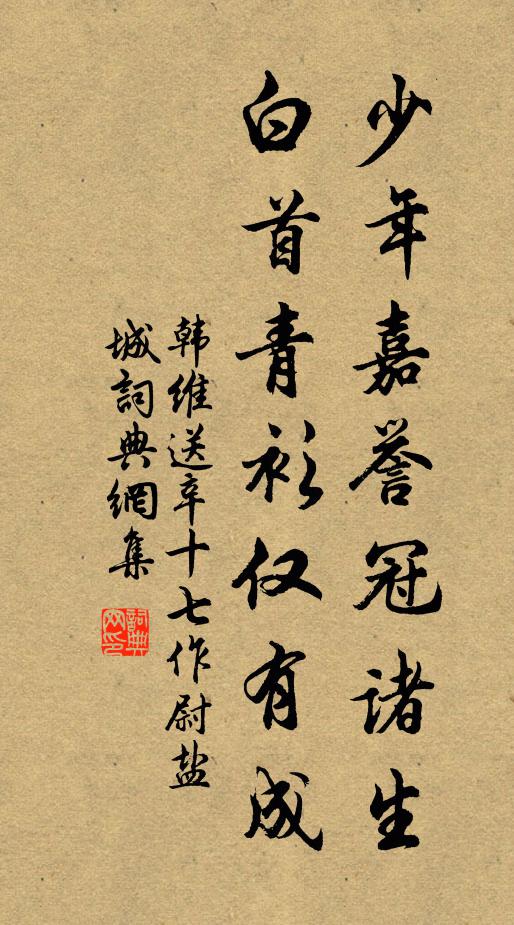 少年嘉誉冠诸生
白首青衫仅有成
韩维送辛十七作尉盐
城詞典網集
詞典网印